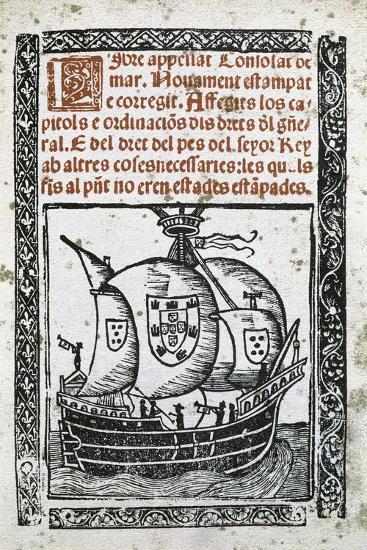 Libre appellat Consolat de
mar. Nouament estampat
e corregit. Affegits los ca-
pitols e ordinaciõs dls drets dl gñe-
ral. E del dret del pes del señor Rey
ab altres coses necessaries: les quals
fis al pũt no eren estades estãpades.